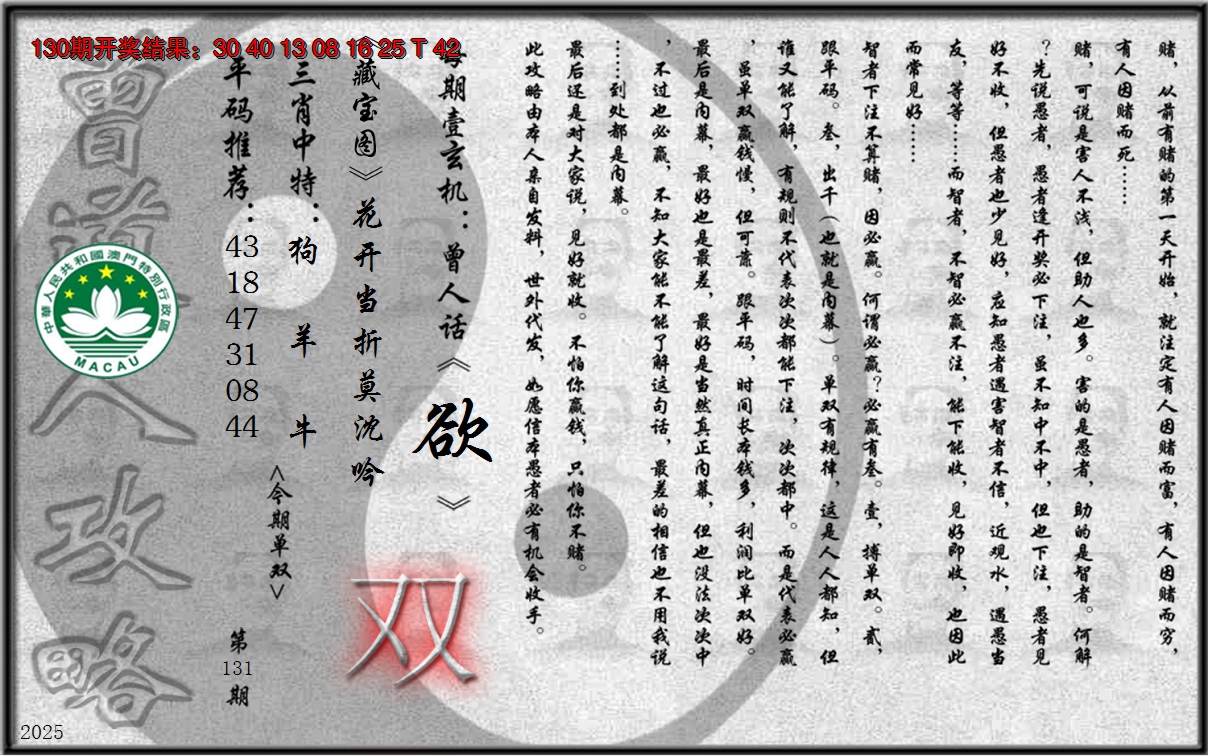 130期开奖结果：30 40 13 08 16 25 T 42
赌，从前有赌的第一天开始，就注定有人因赌而富，有人因赌而穷，
有人因赌而死……
赌，可说是害人不浅，但助人也多。害的是愚者，助的是智者。何解
？先说愚者，愚者逢开奖必下注，虽不知中不中，但也下注，愚者见
好不收，但愚者也少见好，应知愚者遇害智者不信，近观水，遇愚当
友，等等……而智者，不智必赢不注，能下能收，见好即收，也因此
而常见好……
智者下注不算赌，因必赢。何谓必赢？必赢有叁。壹，搏单双。贰，
跟平码。叁，出千（也就是内幕）。单双有规律，这是人人都知，但
谁又能了解，有规则不代表次次都能下注，次次都中。而是代表必赢
，虽单双赢钱慢，但可靠。跟平码，时间长本钱多，利润比单双好。
最后是内幕，最好也是最差，最好是当然真正内幕，但也没法次次中
，不过也必赢，不知大家能不能了解这句话，最差的相信也不用我说
……到处都是内幕。
最后还是对大家说，见好就收。不怕你赢钱，只怕你不赌。
此攻略由本人亲自发料，世外代发，如愿信本愚者必有机会收手。
每期壹玄机：曾人话《欲》
《藏宝图》花开当折莫沈吟
双
三肖中特：狗 羊 牛
<今期单双>
平码推荐：
43
18
47
31
08
44
第
131
期
曾道人攻略
中華人民共和國澳門特別行政區
MACAU
2025